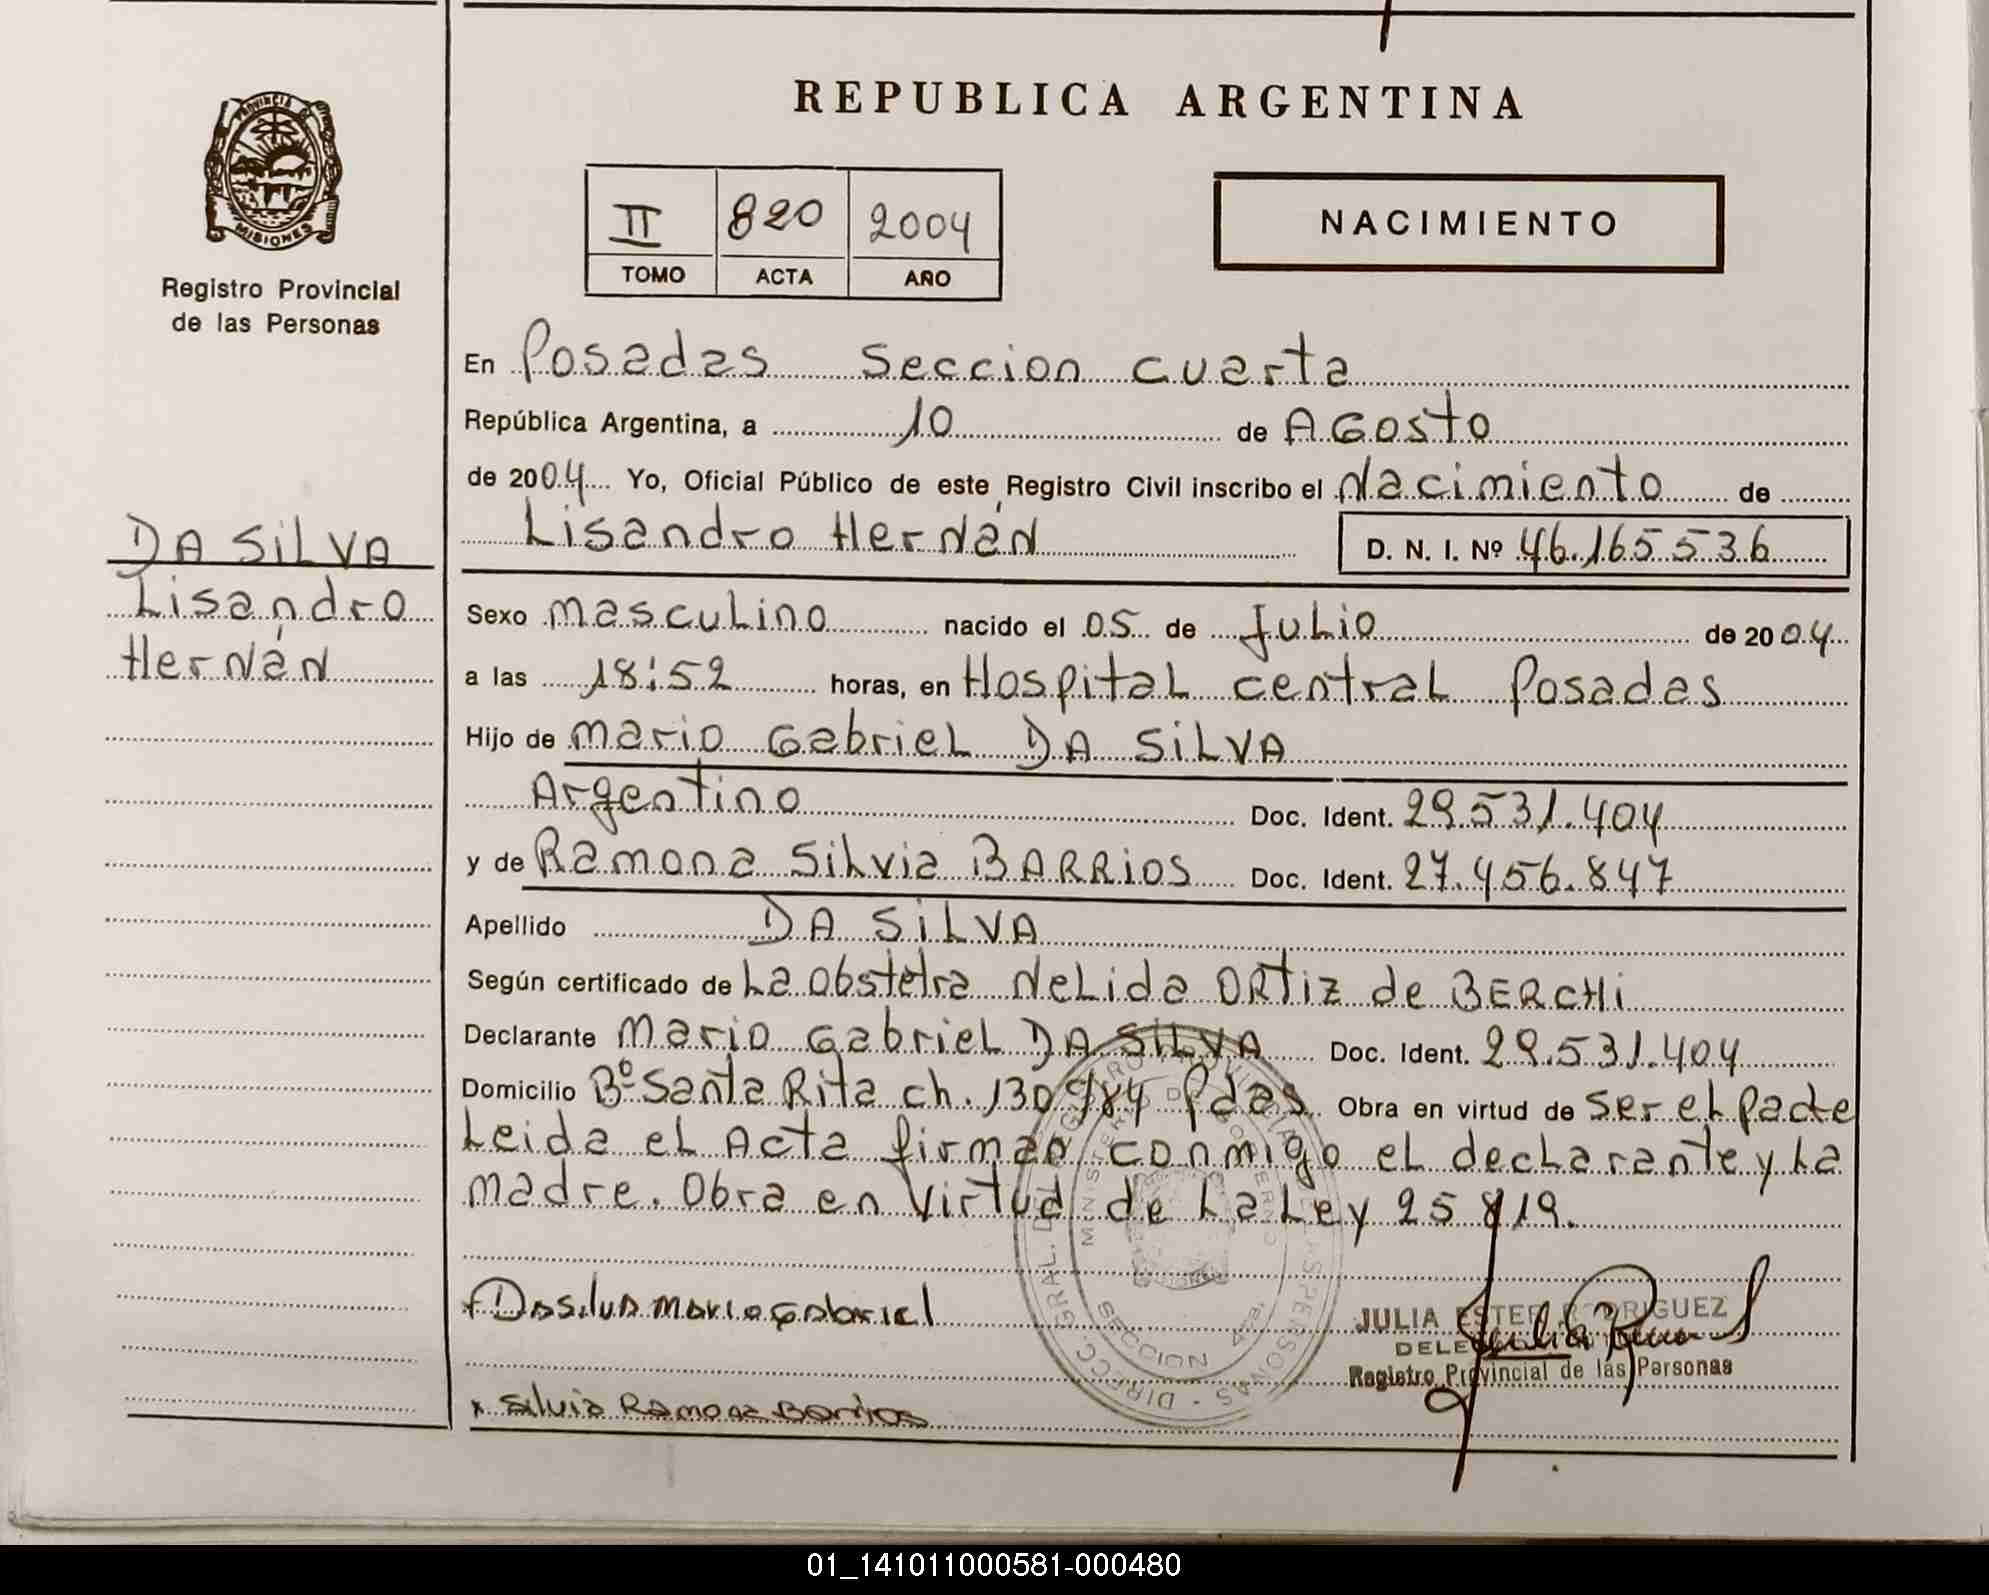 REPUBLICA ARGENTINA
PROVINCIA DE
MISIONES
Registro Provincial
de las Personas
II 820 2004
TOMO ACTA AÑO
NACIMIENTO
En Posadas Seccion cuarta
República Argentina, a 10 de AGosto
de 2004 Yo, Oficial Público de este Registro Civil inscribo el Nacimiento de
Lisandro Hernán D. N. I. Nº 46.165536
DA SiLVA
Lisandro
Hernán
Sexo Masculino nacido el 05 de Julio de 2004
a las 18:52 horas, en Hospital central Posadas
Hijo de Mario Gabriel DA SiLVA
Argentino Doc. Ident. 29.531.404
y de Ramona Silvia BARRiOS Doc. Ident. 27.456.847
Apellido DA SiLVA
Según certificado de La Obstetra Nelida ORTiZ de BERCHi
Declarante Mario Gabriel DA SiLVA Doc. Ident. 29.531.404
Domicilio Bº Santa Rita ch. 130 Pdas Obra en virtud de ser el padre
Leida el Acta firman conmigo el declarante y La
madre. Obra en Virtud de La Ley 25819.
Dasilva Mario Gabriel
JULIA ESTER RODRIGUEZ
Registro Provincial de las Personas
x Silvia Ramona Barrios
DIRECC. GRAL. DEL REGISTRO PROVINCIAL DE LAS PERSONAS
MINISTERIO DE GOBIERNO
SECCION 4ta.
01_141011000581-000480